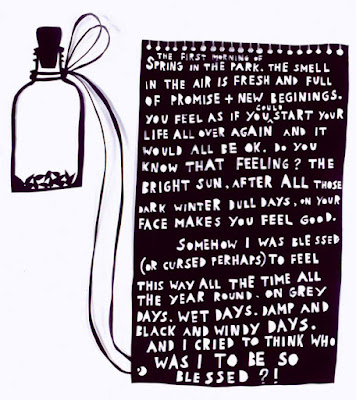 THE FIRST MORNING OF
SPRING IN THE PARK. THE SMELL
IN THE AIR IS FRESH AND FULL
OF PROMISE + NEW BEGININGS.
COULD
YOU FEEL AS IF YOU START YOUR
LIFE ALL OVER AGAIN AND IT
WOULD ALL BE OK. DO YOU
KNOW THAT FEELING? THE
BRIGHT SUN, AFTER ALL THOSE
DARK WINTER DULL DAYS, ON YOUR
FACE MAKES YOU FEEL GOOD.
SOMEHOW I WAS BLESSED
(OR CURSED PERHAPS) TO FEEL
THIS WAY ALL THE TIME ALL
THE YEAR ROUND. ON GREY
DAYS. WET DAYS. DAMP AND
BLACK AND WINDY DAYS.
AND I CRIED TO THINK WHO
WAS I TO BE SO
BLESSED?!